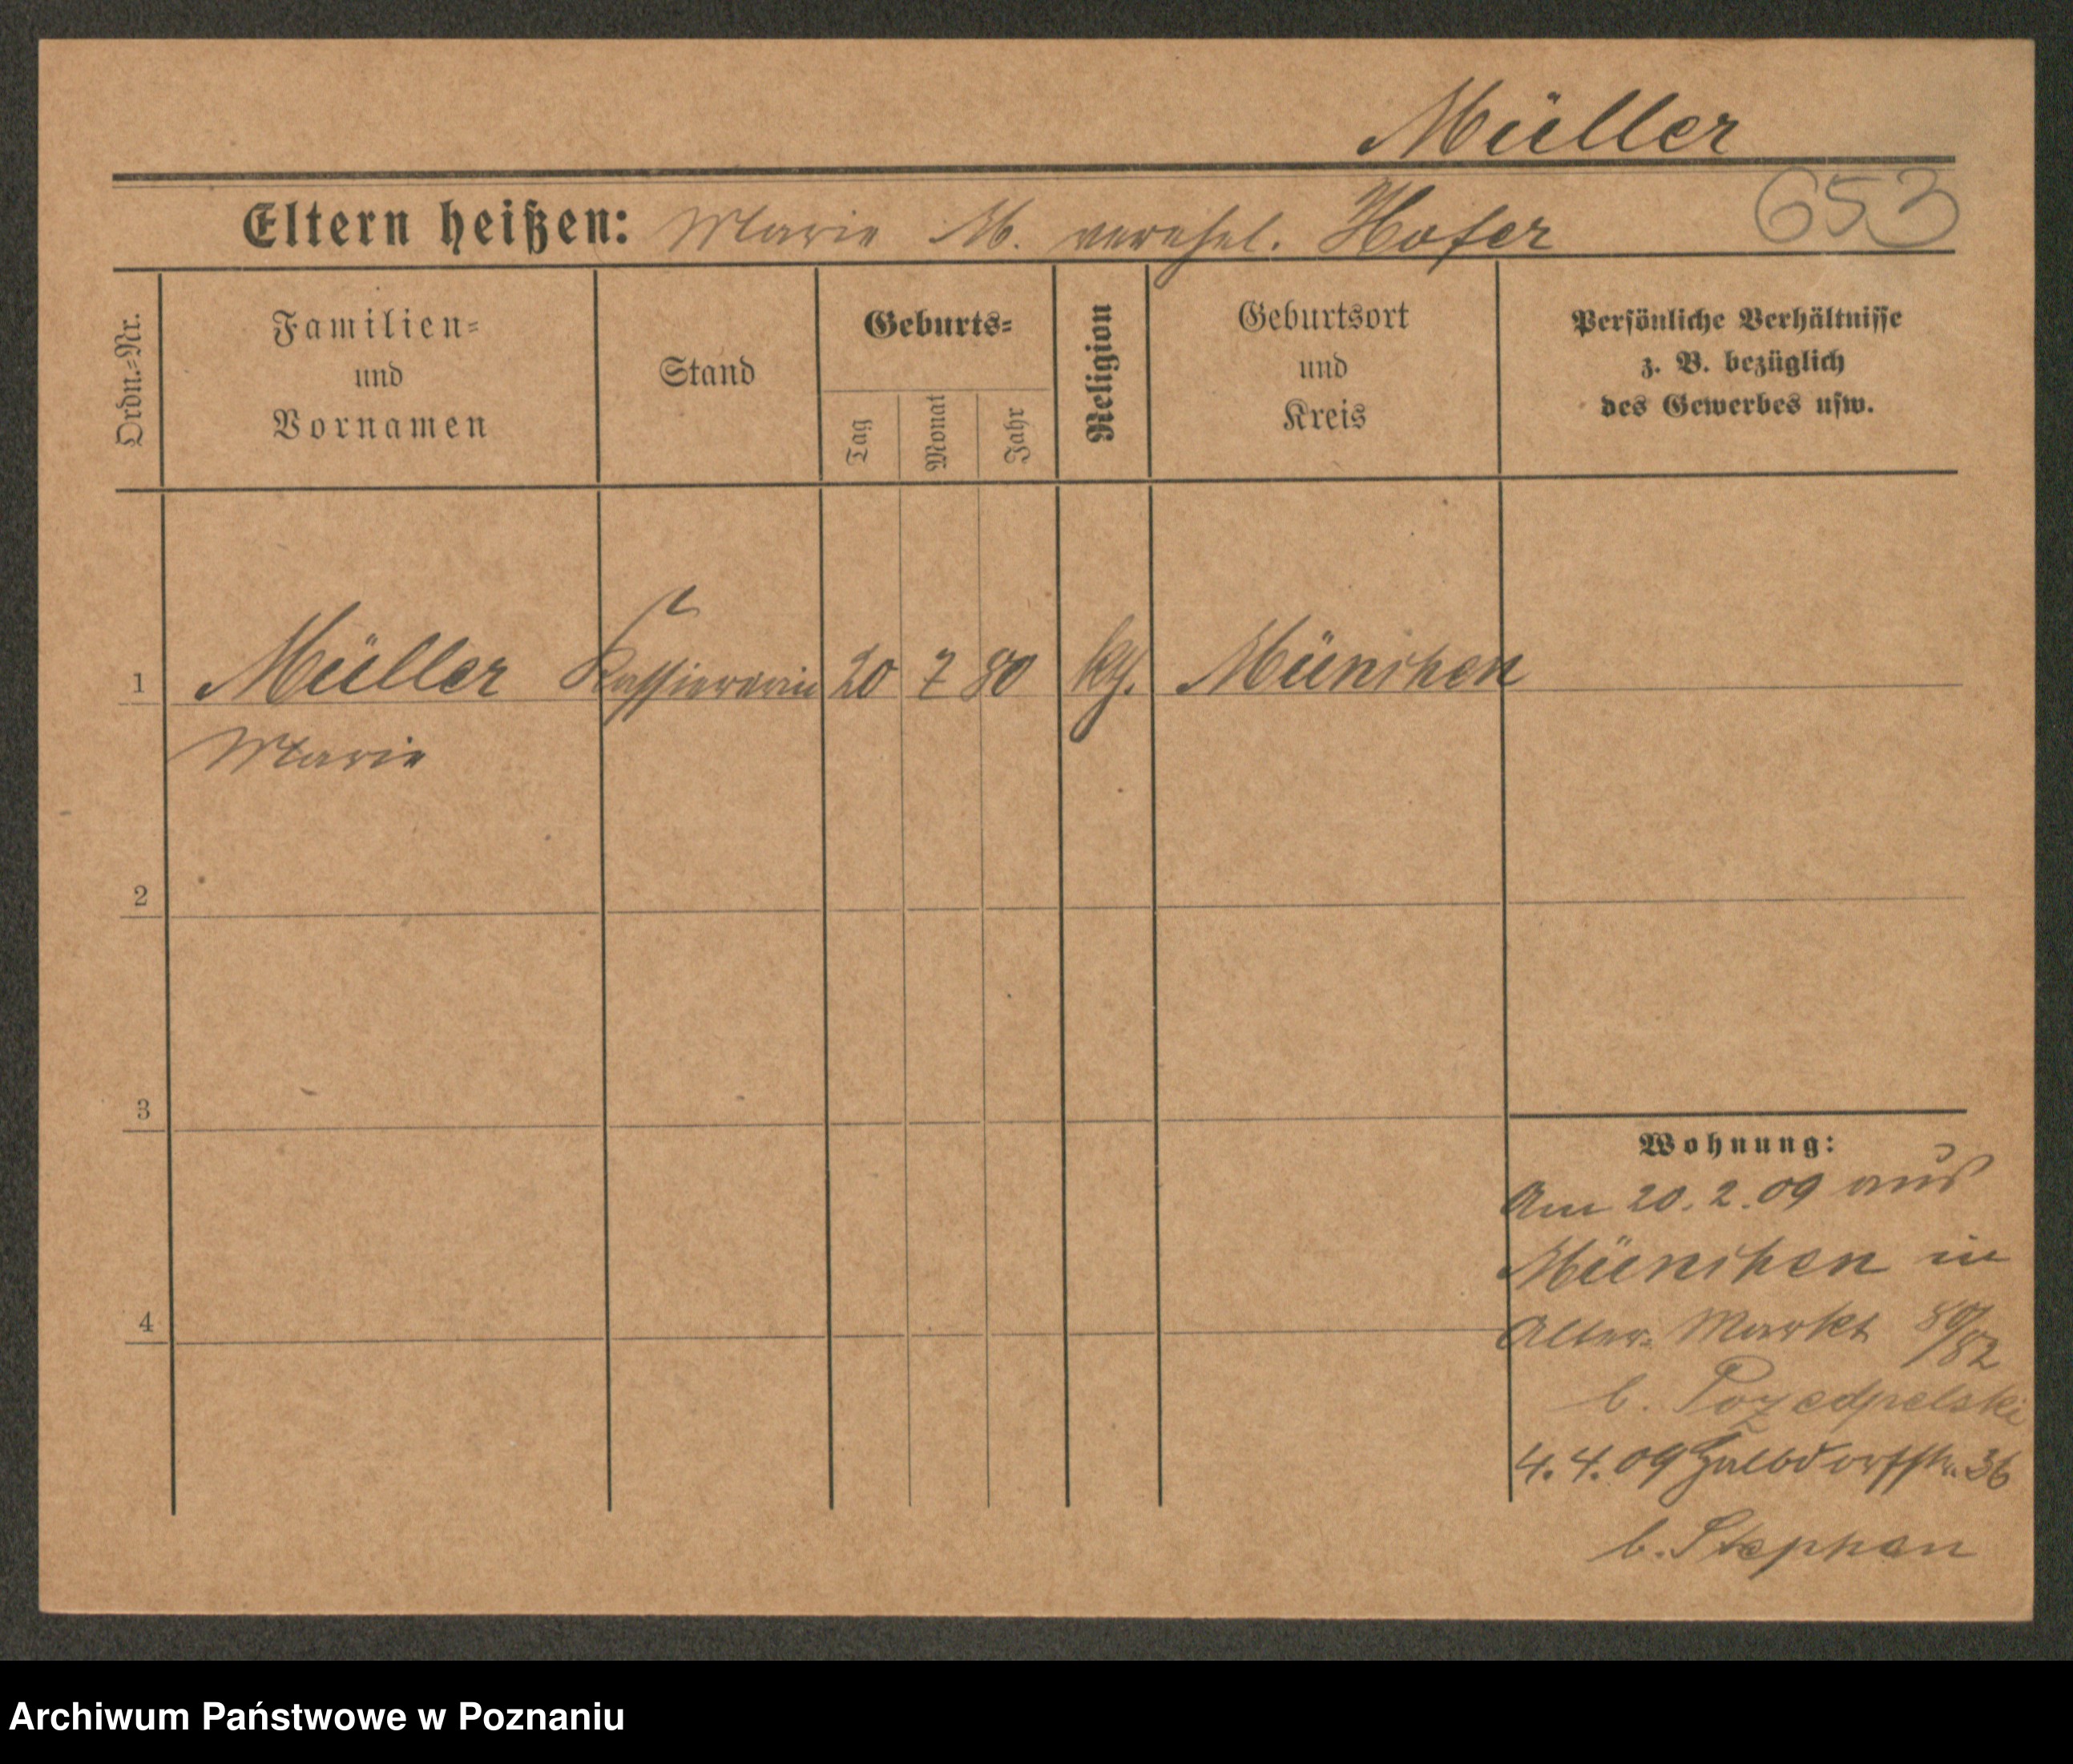 Müller
Eltern heißen: Marie M. verehel. Hofer 653
Ordn.-Nr.
Familien-
und
Vornamen
Stand
Geburts-
Tag
Monat
Jahr
Religion
Geburtsort
und
Kreis
Persönliche Verhältnisse
z. B. bezüglich
des Gewerbes usw.
1 Müller Kassiererin 20 7 80 kth. München
Marie
2
3
4
Wohnung:
Am 20.2.09 aus
München in
Alter Markt 80/82
b.
4.4.09 36
b. Stephan
Archiwum Państwowe w Poznaniu